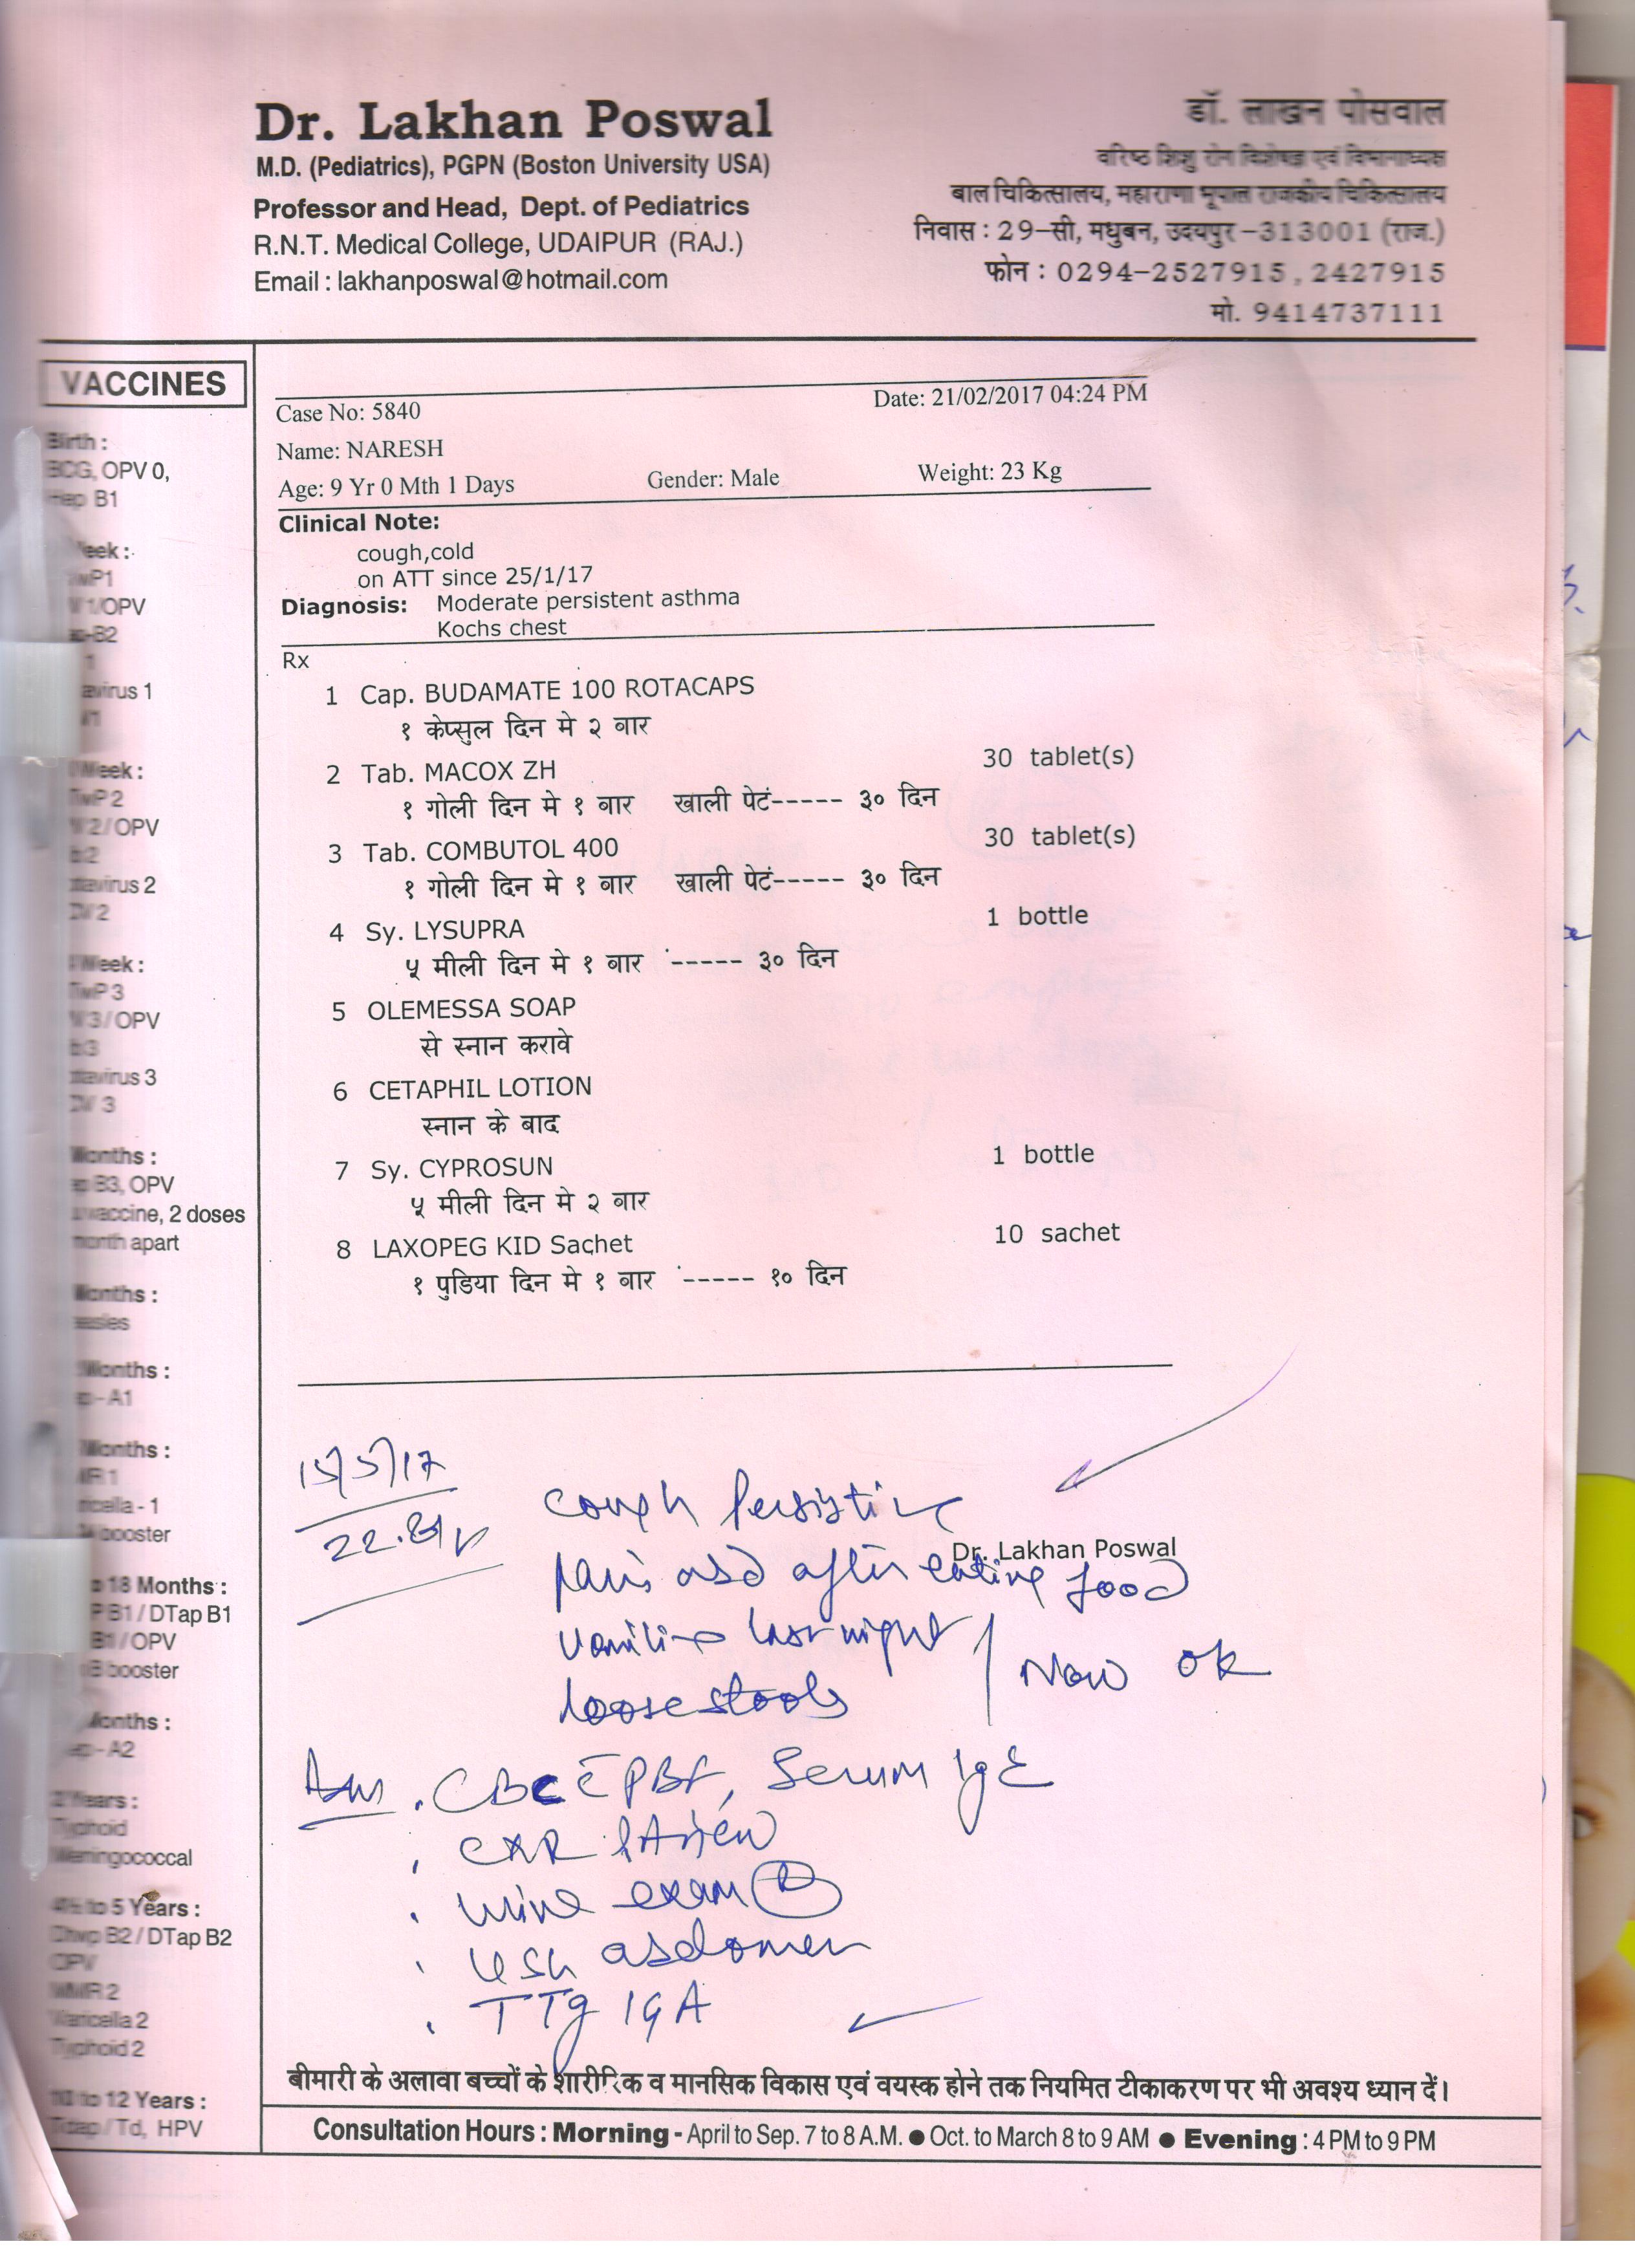 Dr. Lakhan Poswal
M.D. (Pediatrics), PGPN (Boston University USA)
Professor and Head, Dept. of Pediatrics
R.N.T. Medical College, UDAIPUR (RAJ.)
Email : lakhanposwal@hotmail.com
डॉ. लाखन पोसवाल
वरिष्ठ शिशु रोग विशेषज्ञ एवं विभागाध्यक्ष
बाल चिकित्सालय, महाराणा भूपाल राजकीय चिकित्सालय
निवास : 29-सी, मधुबन, उदयपुर-313001 (राज.)
फोन : 0294-2527915, 2427915
मो. 9414737111
VACCINES
Birth :
BCG, OPV 0,
Hep B1
Week :
wP1
1/OPV
B2
1
avirus 1
Week :
TwP 2
2/OPV
2
otavirus 2
2
Week :
TwP 3
3/OPV
3
otavirus 3
3
Months :
B3, OPV
vaccine, 2 doses
month apart
Months :
easles
Months :
- A1
Months :
R 1
ricella - 1
booster
18 Months :
B1 / DTap B1
B1/OPV
B booster
Months :
- A2
2 Years :
Typhoid
Meningococcal
to 5 Years :
B2 / DTap B2
OPV
MMR 2
Varicella 2
Typhoid 2
to 12 Years :
Tdap / Td, HPV
Case No: 5840 Date: 21/02/2017 04:24 PM
Name: NARESH
Age: 9 Yr 0 Mth 1 Days Gender: Male Weight: 23 Kg
Clinical Note:
cough,cold
on ATT since 25/1/17
Diagnosis: Moderate persistent asthma
Kochs chest
Rx
1 Cap. BUDAMATE 100 ROTACAPS
१ केप्सुल दिन मे २ बार
2 Tab. MACOX ZH 30 tablet(s)
१ गोली दिन मे १ बार खाली पेटं----- ३० दिन
3 Tab. COMBUTOL 400 30 tablet(s)
१ गोली दिन मे १ बार खाली पेटं----- ३० दिन
4 Sy. LYSUPRA 1 bottle
५ मीली दिन मे १ बार ----- ३० दिन
5 OLEMESSA SOAP
से स्नान करावे
6 CETAPHIL LOTION
स्नान के बाद
7 Sy. CYPROSUN 1 bottle
५ मीली दिन मे २ बार
8 LAXOPEG KID Sachet 10 sachet
१ पुडिया दिन मे १ बार ----- १० दिन
15/5/17
cough persisting
Dr. Lakhan Poswal
pain abd after eating food
vomiting last night
loose stools
Now ok
CBC c̄ PBF, Serum IgE
CXR PA view
urine exam (R)
USG abdomen
TTg IgA
बीमारी के अलावा बच्चों के शारीरिक व मानसिक विकास एवं वयस्क होने तक नियमित टीकाकरण पर भी अवश्य ध्यान दें।
Consultation Hours : Morning - April to Sep. 7 to 8 A.M. ● Oct. to March 8 to 9 AM ● Evening : 4 PM to 9 PM